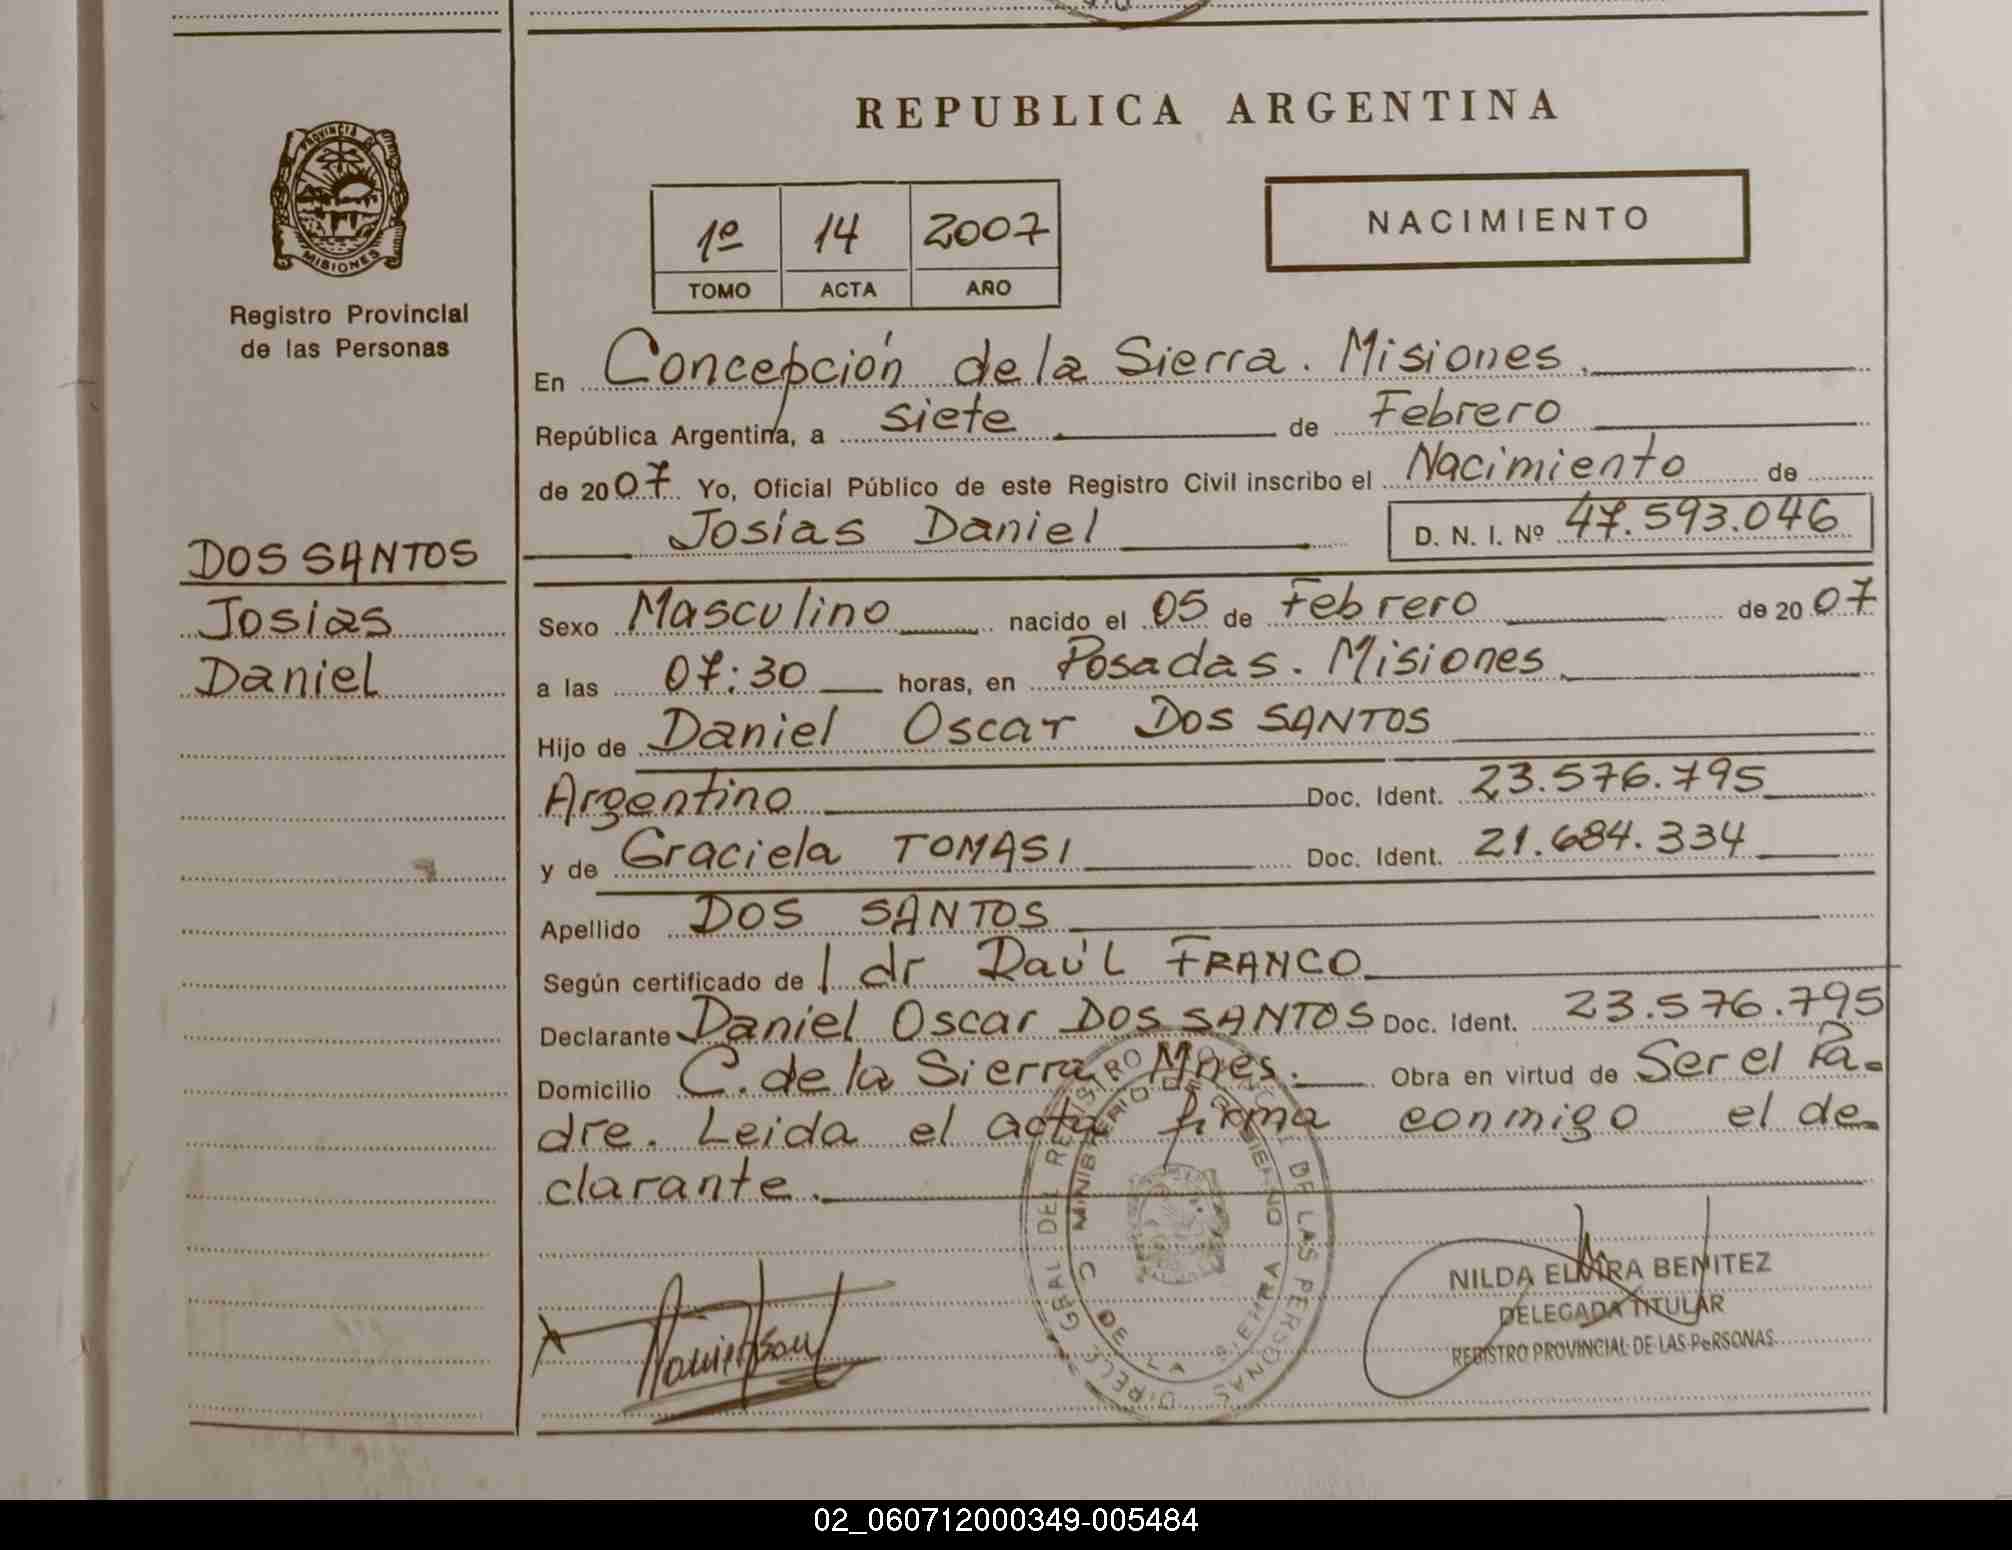 REPUBLICA ARGENTINA
PROVINCIA DE
MISIONES
Registro Provincial
de las Personas
1º 14 2007
TOMO ACTA AÑO
NACIMIENTO
En Concepción de la Sierra. Misiones.
República Argentina, a siete de Febrero
de 2007 Yo, Oficial Público de este Registro Civil inscribo el Nacimiento de
Josías Daniel D. N. I. Nº 47.593.046
DOS SANTOS
Josias
Daniel
Sexo Masculino nacido el 05 de Febrero de 2007
a las 07:30 horas, en Posadas. Misiones
Hijo de Daniel Oscar DOS SANTOS
Argentino Doc. Ident. 23.576.795
y de Graciela TOMASI Doc. Ident. 21.684.334
Apellido DOS SANTOS
Según certificado de l dr Raúl FRANCO
Declarante Daniel Oscar DOS SANTOS Doc. Ident. 23.576.795
Domicilio C. de la Sierra Mnes. Obra en virtud de Ser el Pa-
dre. Leida el acta firma conmigo el de-
clarante.
NILDA ELVIRA BENITEZ
DELEGADA TITULAR
REGISTRO PROVINCIAL DE LAS PeRSONAS
02_060712000349-005484